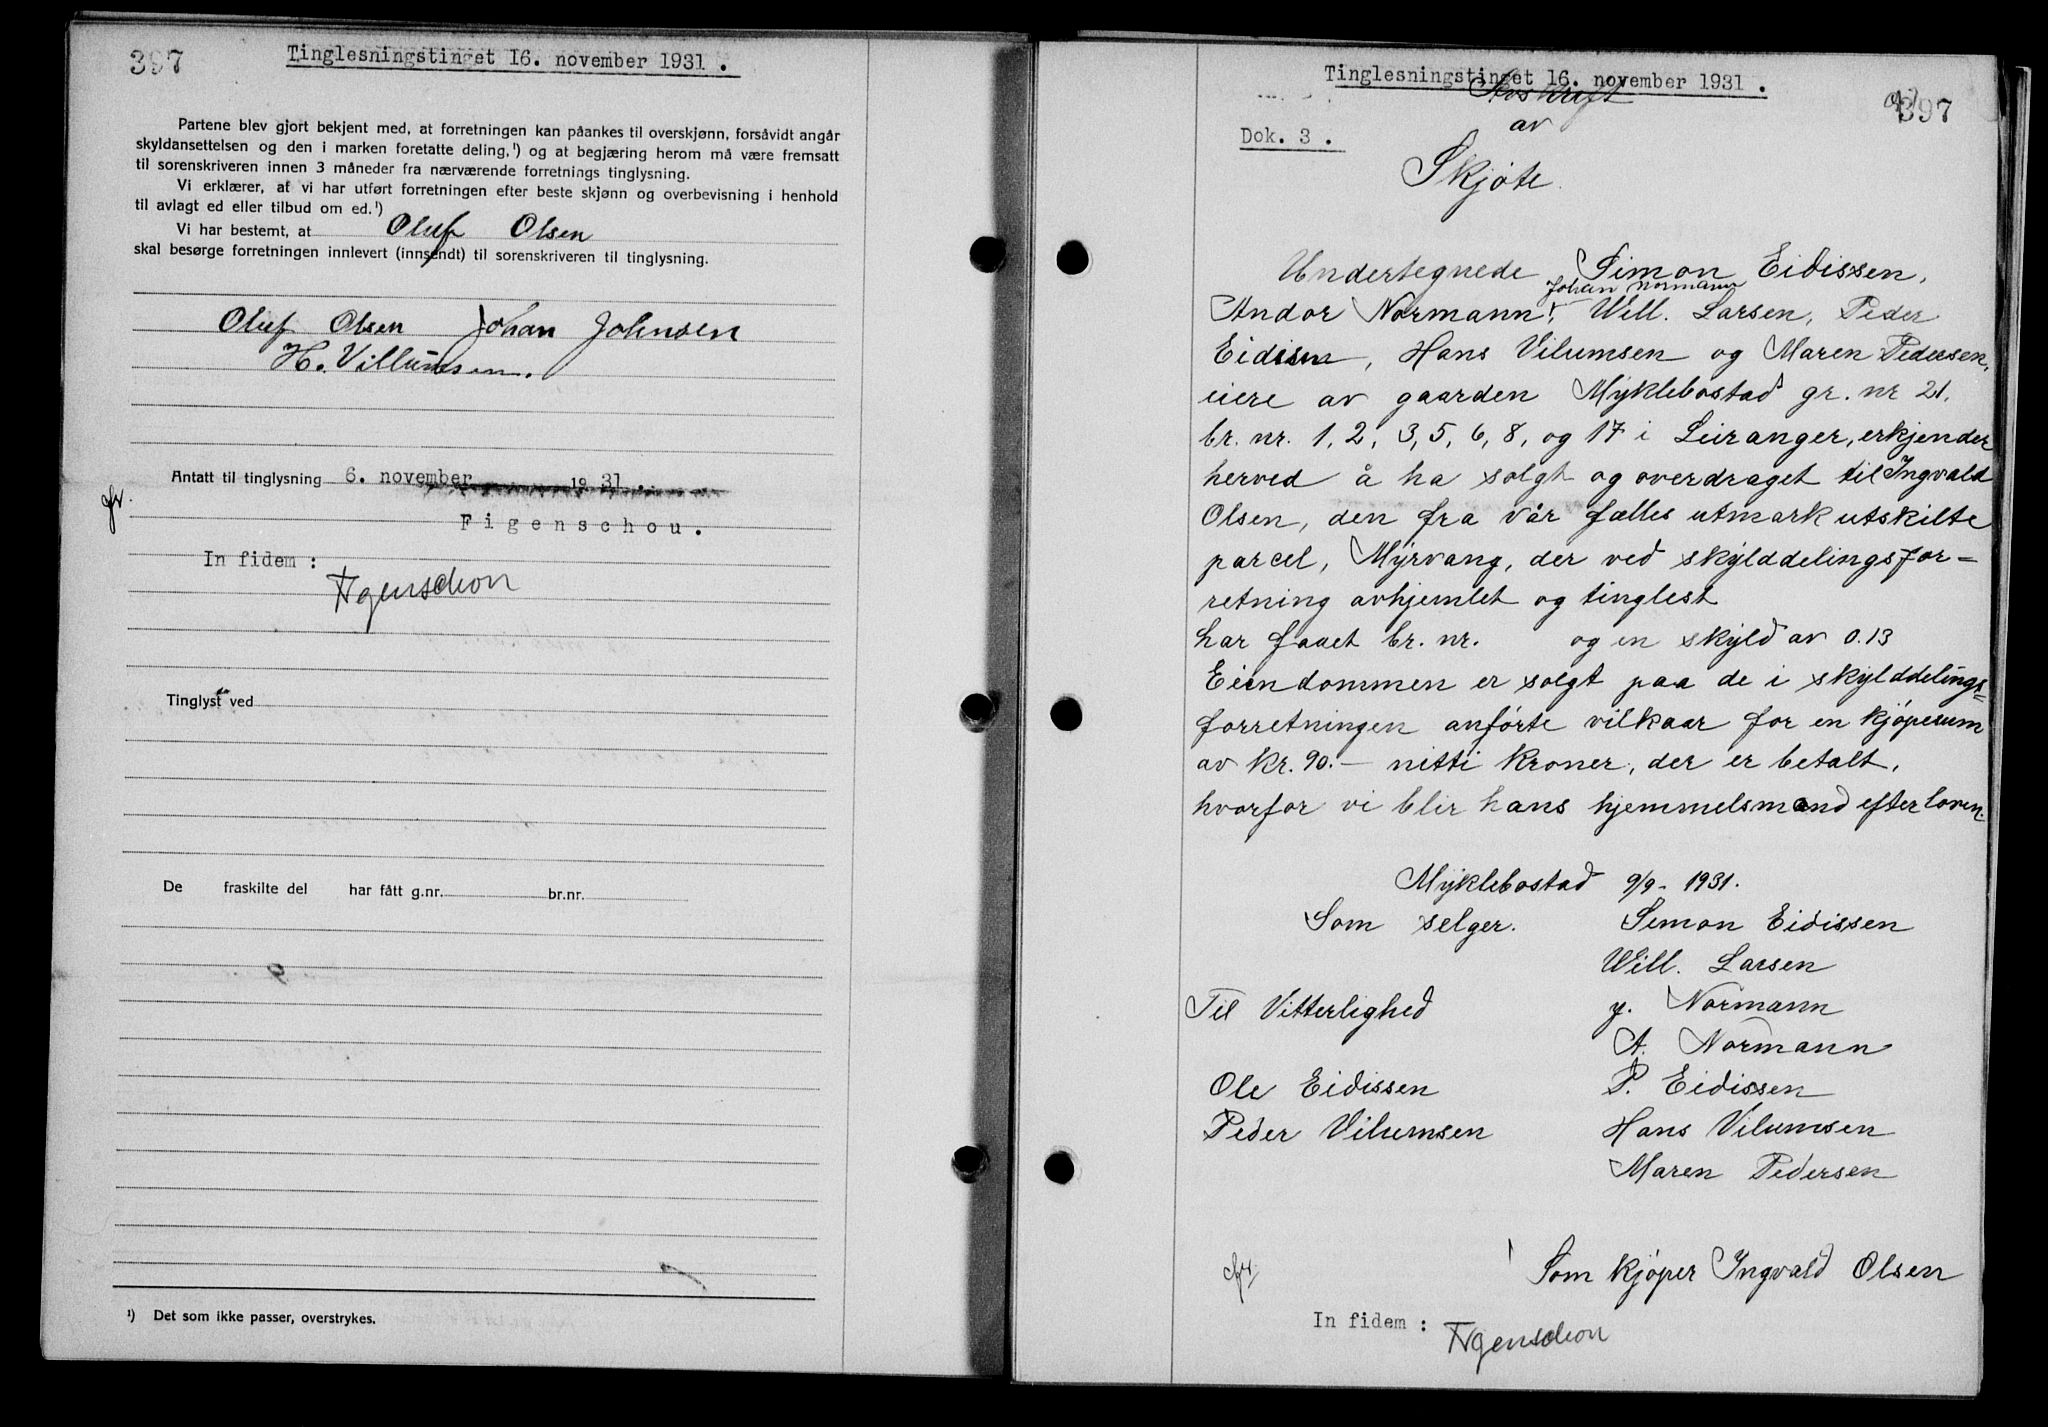 397
Tinglesningstinget 16. november 1931 .
Partene blev gjort bekjent med, at forretningen kan påankes til overskjønn, forsåvidt angår
skyldansettelsen og den i marken foretatte deling,¹) og at begjæring herom må være fremsatt
til sorenskriveren innen 3 måneder fra nærværende forretnings tinglysning.
Vi erklærer, at vi har utført forretningen efter beste skjønn og overbevisning i henhold
til avlagt ed eller tilbud om ed.¹)
Vi har bestemt, at Oluf Olsen
skal besørge forretningen innlevert (innsendt) til sorenskriveren til tinglysning.
Oluf Olsen Johan Johnsen
H. Villumsen.
Antatt til tinglysning 6. november 1931.
Figenschou.
In fidem :
Figenschou
Tinglyst ved
De fraskilte del har fått g.nr. br.nr.
¹) Det som ikke passer, overstrykes.
Tinglesningstinget 16. november 1931 .
397
Avskrift
Dok. 3 .
av
Skjøte.
Undertegnede Simon Eidissen,
Johan Normann
Andor Normann, Will. Larsen, Peder
Eidissen, Hans Vilumsen og Maren Pedersen,
eiere av gaarden Myklebostad gr. nr 21.
br. nr. 1, 2, 3, 5, 6, 8, og 17 i Leiranger, erkjender
herved å ha solgt og overdraget til Ingvald
Olsen, den fra vår fælles utmark utskilte
parcel, Myrvang, der ved skylddelingsfor-
retning avhjemlet og tinglest
har faaet br. nr. og en skyld av 0.13
Eiendommen er solgt paa de i skylddelings-
forretningen anførte vilkaar for en kjøpesum
av kr. 90.- nitti kroner, der er betalt,
hvorfor vi blir hans hjemmelsmænd efter loven.
Myklebostad 9/9- 1931.
Som selger. Simon Eidissen
Will. Larsen
Til Vitterlighed J. Normann
A. Normann
Ole Eidissen P. Eidissen
Peder Vilumsen Hans Vilumsen
Maren Pedersen
Som kjøper Ingvald Olsen
In fidem :
Figenschou